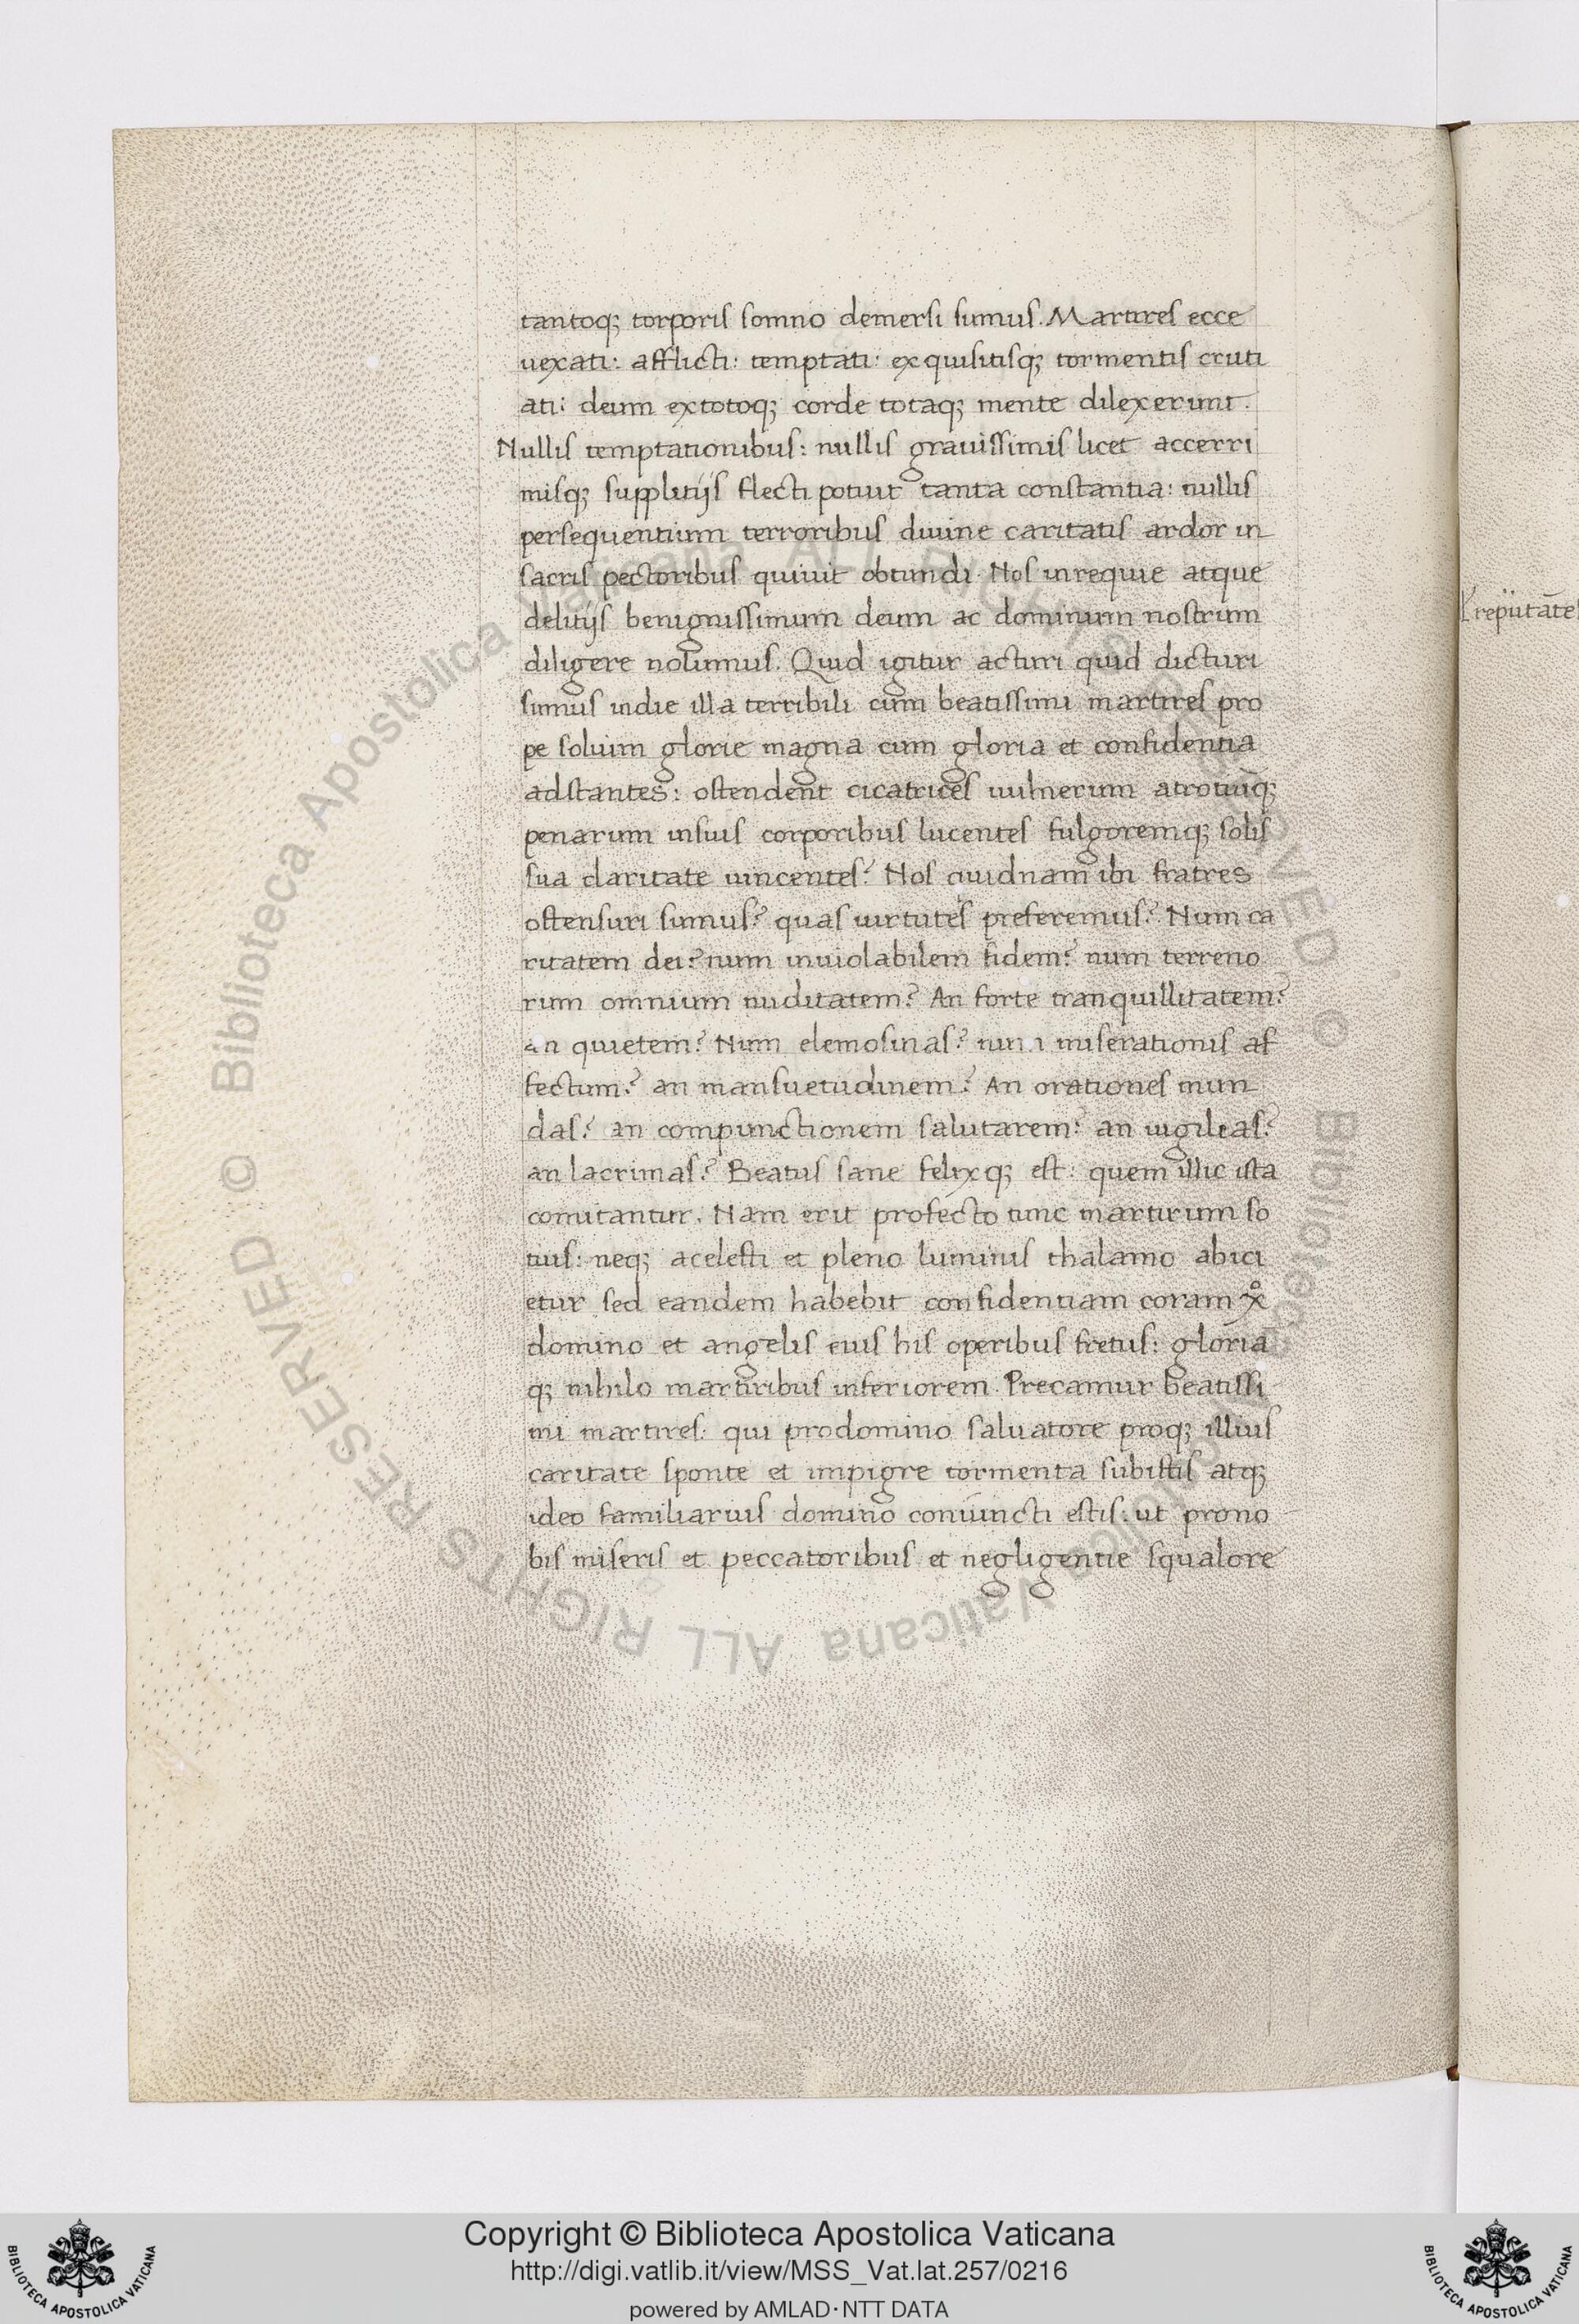 tantoq; torporis somno demersi sumus. Martires ecce
uexati: afflicti: temptati: exquisitisq; tormentis cruti
ati: deum extotoq; corde totaq; mente dilexerunt.
Nullis temptationibus: nullis grauissimis licet accerri
misq; supplitijs flecti potuit tanta constantia: nullis
persequentium terroribus diuine caritatis ardor in
sacris pectoribus quiuit obtundi. Nos inrequie atque
delitijs benignissimum deum ac dominum nostrum
diligere nolumus. Quid igitur acturi quid dicturi
sumus indie illa terribili cum beatissimi martires pro
pe solium glorie magna cum gloria et confidentia
adstantes: ostendent cicatrices uulnerum atrotiuq;
penarum insuis corporibus lucentes fulgoremq; solis
sua claritate uincentes? Nos quidnam ibi fratres
ostensuri sumus? quas uirtutes preferemus? Num ca
ritatem dei? num inuiolabilem fidem? num terreno
rum omnium nuditatem? An forte tranquillitatem?
an quietem? Num elemosinas? num miserationis af
fectum? an mansuetudinem? An orationes mun
das? an compunctionem salutarem? an uigilias?
an lacrimas? Beatus sane felixq; est: quem illic ista
comitantur. Nam erit profecto tunc martirum so
tius: neq; acelesti et pleno luminis thalamo abici
etur sed eandem habebit confidentiam coram xo
domino et angelis eius his operibus fretus: gloria
q; nihilo martiribus inferiorem. Precamur beatissi
mi martires: qui prodomino saluatore proq; illius
caritate sponte et impigre tormenta subistis atq;
ideo familiarius domino coniuncti estis: ut prono
bis miseris et peccatoribus et negligentie squalore
reputātes
Copyright © Biblioteca Apostolica Vaticana
http://digi.vatlib.it/view/MSS_Vat.lat.257/0216
powered by AMLAD·NTT DATA